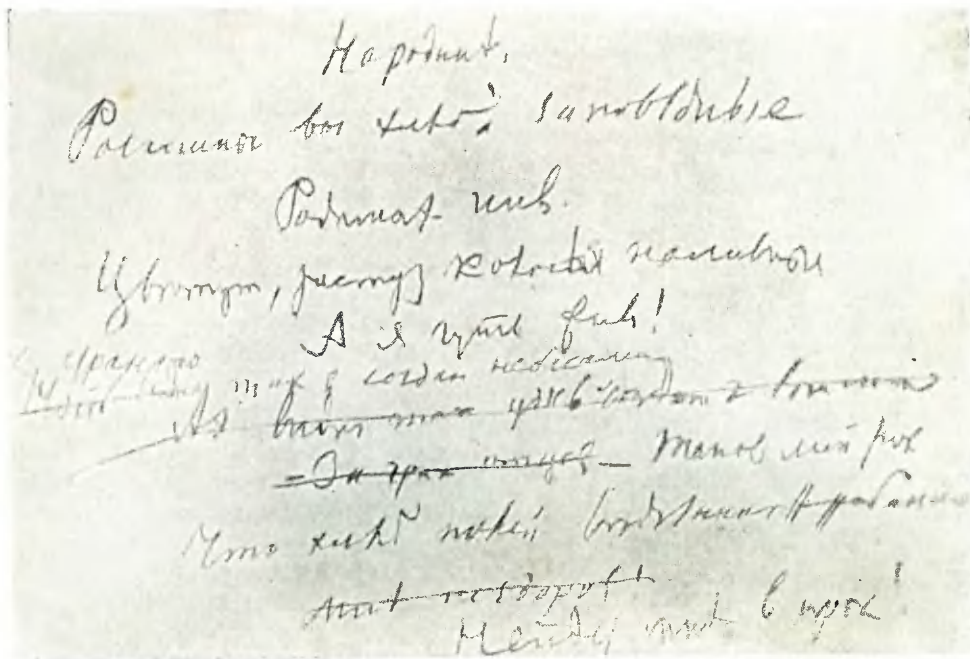 Роскошны вы хлѣба заповѣдные
Родимыхъ нивъ.
Цвѣтутъ, растутъ колосья наливные
А я чуть живъ!
Ахъ странно
такъ я созданъ небесами
За грѣхъ отцовъ Таковъ мой рокъ
Что хлѣбъ полей воздѣланныхъ рабами
Нейдетъ мнѣ в прокъ!